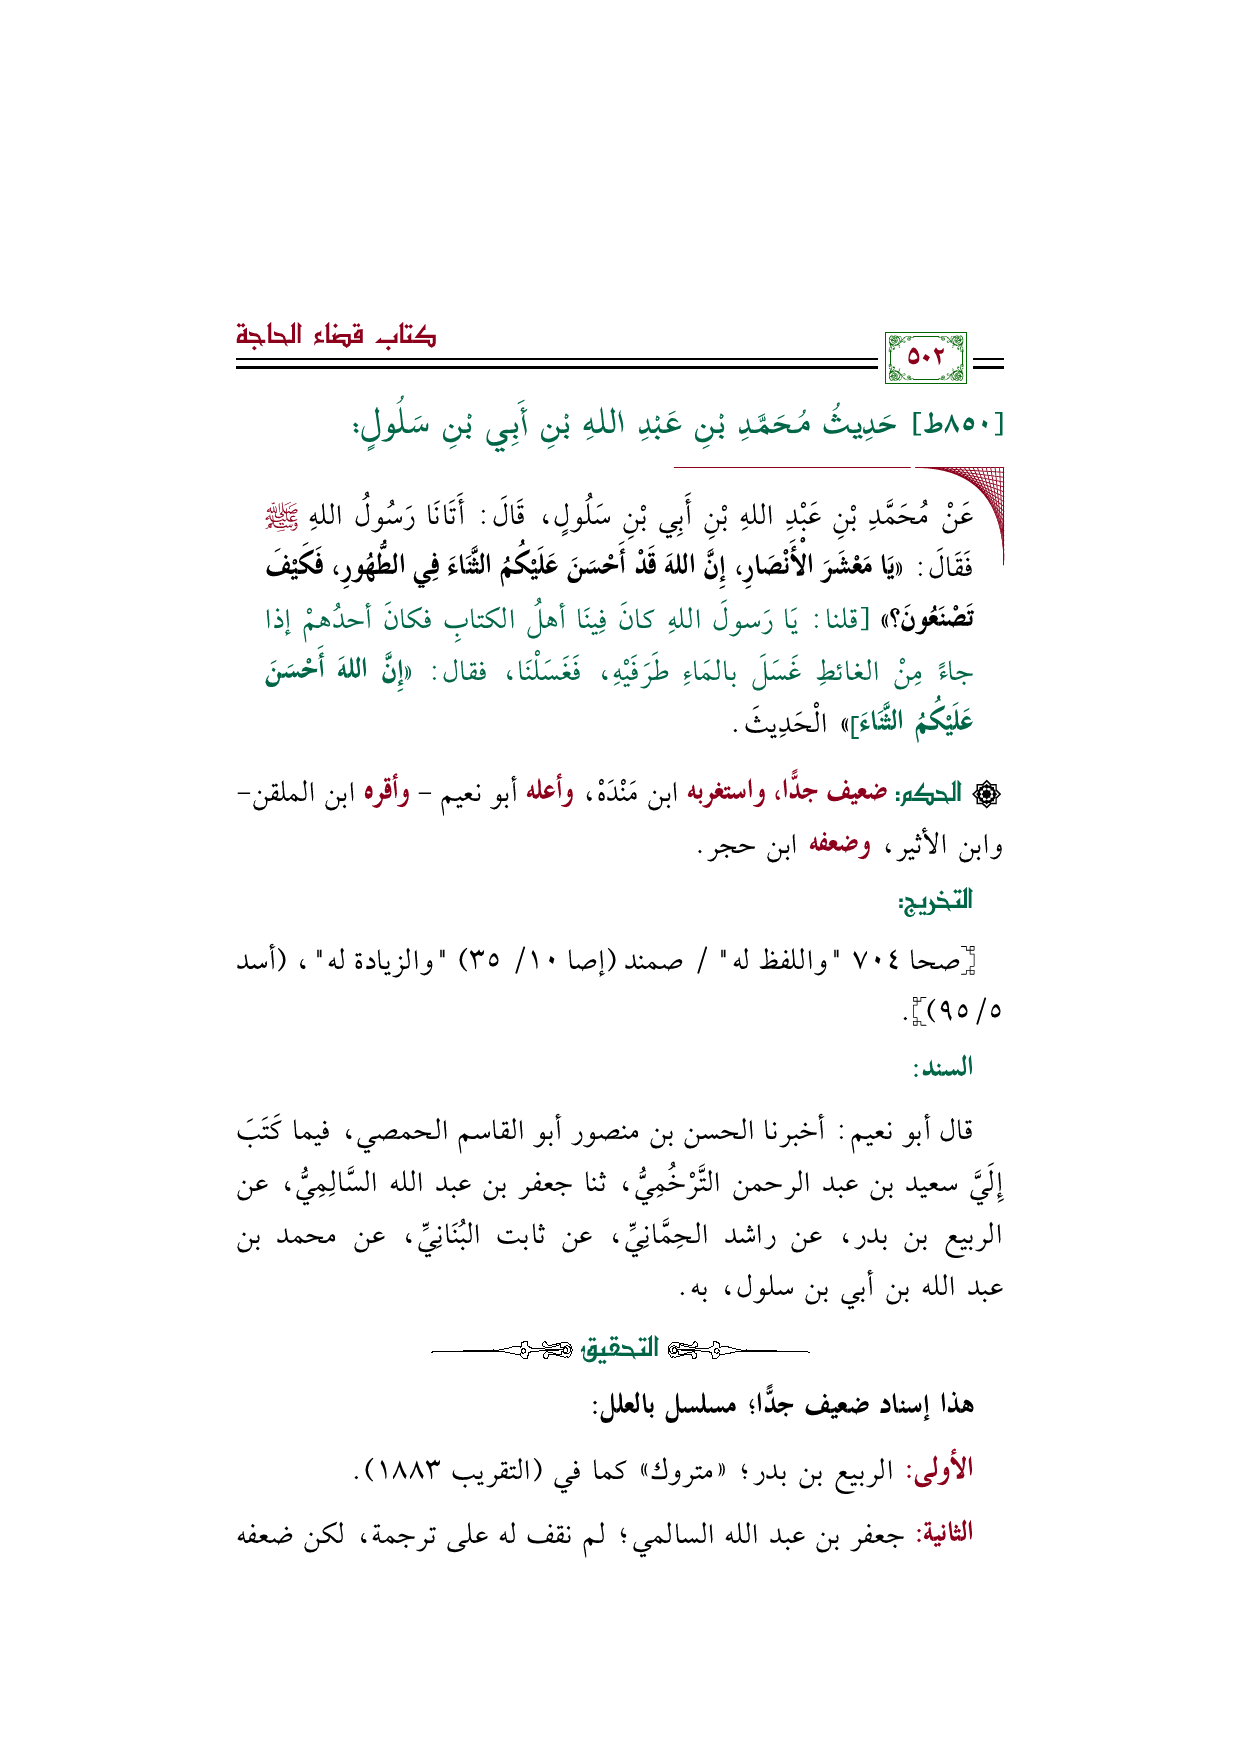 كتاب قضاء الحاجة
٥٠٢
[٨٥٠ط] حَدِيثُ مُحَمَّدِ بْنِ عَبْدِ اللهِ بْنِ أَبِي بْنِ سَلُولٍ:
عَنْ مُحَمَّدِ بْنِ عَبْدِ اللهِ بْنِ أَبِي بْنِ سَلُولٍ، قَالَ: أَتَانَا رَسُولُ اللهِ ﷺ
فَقَالَ: «يَا مَعْشَرَ الْأَنْصَارِ، إِنَّ اللهَ قَدْ أَحْسَنَ عَلَيْكُمُ الثَّنَاءَ فِي الطُّهُورِ، فَكَيْفَ
تَصْنَعُونَ؟» [قلنا: يَا رَسولَ اللهِ كانَ فِينَا أهلُ الكتابِ فكانَ أحدُهمْ إذا
جاءَ مِنْ الغائطِ غَسَلَ بالمَاءِ طَرَفَيْهِ، فَغَسَلْنَا، فقال: «إِنَّ اللهَ أَحْسَنَ
عَلَيْكُمُ الثَّنَاءَ]» الْحَدِيثَ.
الحكم: ضعيف جدًّا، واستغربه ابن مَنْدَهْ، وأعله أبو نعيم - وأقره ابن الملقن-
وابن الأثير، وضعفه ابن حجر.
التخريج:
[صحا ٧٠٤ "واللفظ له" / صمند (إصا ١٠/ ٣٥) "والزيادة له"، (أسد
٥/ ٩٥)].
السند:
قال أبو نعيم: أخبرنا الحسن بن منصور أبو القاسم الحمصي، فيما كَتَبَ
إِلَيَّ سعيد بن عبد الرحمن التَّرْخُمِيُّ، ثنا جعفر بن عبد الله السَّالِمِيُّ، عن
الربيع بن بدر، عن راشد الحِمَّانِيِّ، عن ثابت البُنَانِيِّ، عن محمد بن
عبد الله بن أبي بن سلول، به.
التحقيق
هذا إسناد ضعيف جدًّا؛ مسلسل بالعلل:
الأولى: الربيع بن بدر؛ «متروك» كما في (التقريب ١٨٨٣).
الثانية: جعفر بن عبد الله السالمي؛ لم نقف له على ترجمة، لكن ضعفه